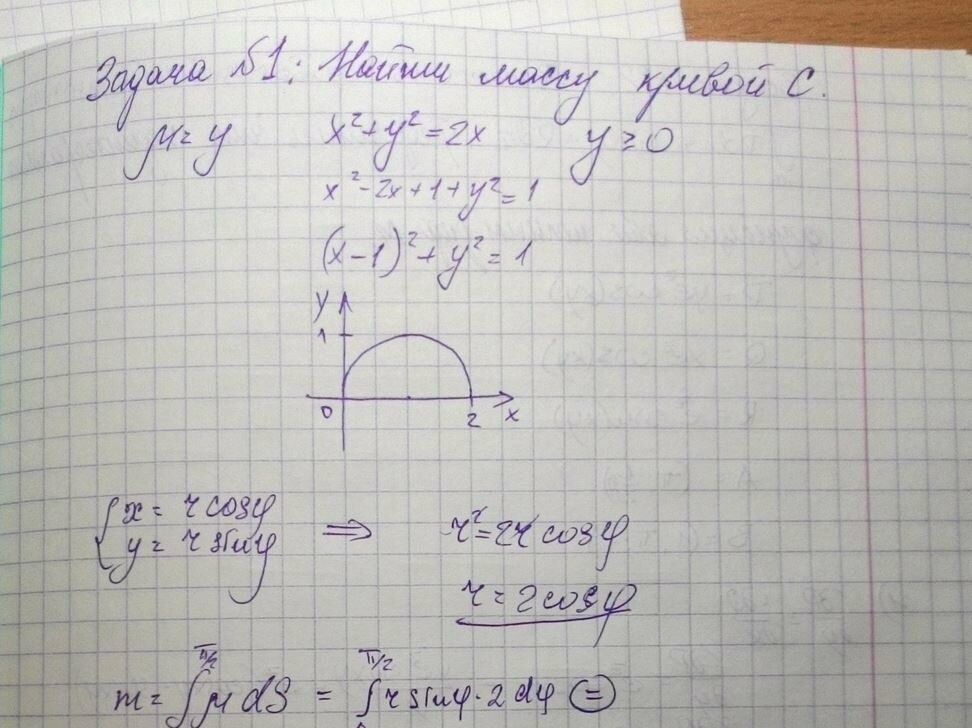 Задача №1: Найти массу кривой C.
μ = y x² + y² = 2x y ≥ 0
x² - 2x + 1 + y² = 1
(x - 1)² + y² = 1
y
1
0 2 x
{ x = r cosφ
y = r sinφ ⇒ r² = 2r cosφ
r = 2cosφ
π/2 π/2
m = ∫ μ dS = ∫ r sinφ · 2 dφ =